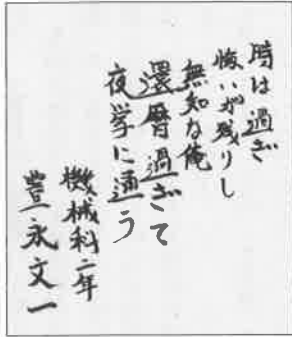 時は過ぎ
悔いが残りし
無知な俺
還暦過ぎて
夜学に通う
機械科二年
豊永文一